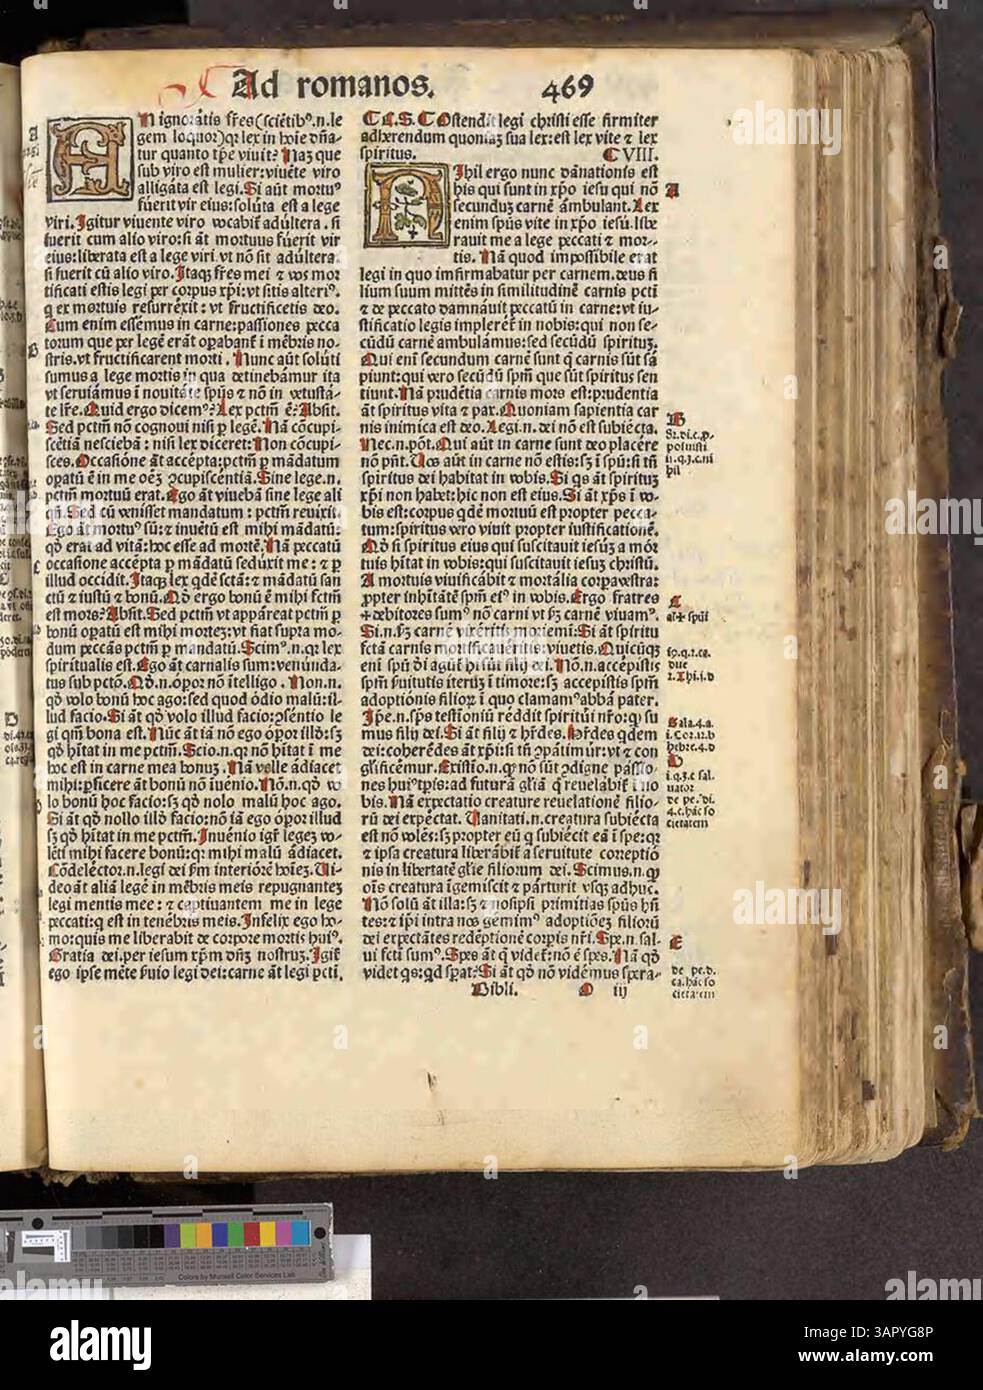 Ad romanos. 469
N ignorātis fr̄es(sciētibꝰ.n.le
gem loquor)qꝛ lex in hoīe dn̄a-
tur quanto tp̄e viuit? Naʒ que
sub viro est mulier:viuēte viro
alligāta est legi.Si aūt mortuꝰ
fuerit vir eius:soluta est a lege
viri.Igitur viuente viro vocabit̄ adultera.si
fuerit cum alio viro:si āt mortuus fuerit vir
eius:liberata est a lege viri.vt nō sit adultera.
si fuerit cū alio viro.Itaqʒ fr̄es mei ⁊ vos mor
tificati estis legi per corpus xp̄i:vt sitis alteriꝰ.
q ex mortuis resurrexit:vt fructificetis deo.
Cum enim essemus in carne:passiones pecca
torum que per legē erāt opabant̄ ī mēbris no-
stris.vt fructificarent morti. Nunc aūt soluti
sumus a lege mortis in qua detinebāmur ita
vt seruiāmus ī nouitāte sp̄us ⁊ nō in vetustā-
te lr̄e.Quid ergo dicemꝰ?Lex pctm̄ ē?Absit.
Sed pctm̄ nō cognoui nisi ꝑ legē.Nā cōcupi-
scētiā nesciebā:nisi lex diceret:Non cōcupi-
sces.Occasiōne āt accepta:pctm̄ ꝑ mādatum
opatū ē in me oēʒ ꝯcupiscentiā.Sine lege.n.
pctm̄ mortuū erat.Ego āt viuebā sine lege ali
qn̄.Sed cū venisset mandatum:pctm̄ reuixit.
Ego āt mortuꝰ sū:⁊ inuētū est mihi mādatū:
qd̄ erat ad vitā:hoc esse ad mortē.Nā peccatū
occasione accepta ꝑ mādatū seduxit me:⁊ ꝑ
illud occidit.Itaqʒ lex qdē sctā:⁊ mādatū san
ctū ⁊ iustū ⁊ bonū.Qd̄ ergo bonū ē mihi fctm̄
est mors?Absit.Sed pctm̄ vt appareat pctm̄ ꝑ
bonū opatū est mihi morteʒ:vt fiat supra mo-
dum peccās pctm̄ ꝑ mandatū.Scimꝰ.n.qꝛ lex
spiritualis est.Ego āt carnalis sum:venunda-
tus sub pctō.Qd̄.n.opor nō ītelligo.Non.n.
qd̄ volo bonū hoc ago:sed quod ōdio malū:il-
lud facio.Si āt qd̄ volo illud facio:ꝯsentio le
gi qm̄ bona est.Nūc āt iā nō ego opor illd̄:sʒ
qd̄ hītat in me pctm̄.Scio.n.qꝛ nō hītat ī me
hoc est in carne mea bonuʒ.Nā velle adiacet
mihi:ꝑficere āt bonū nō inuenio.Nō.n.qd̄ vo
lo bonū hoc facio:sʒ qd̄ nolo malū hoc ago.
Si āt qd̄ nollo illd̄ facio:nō iā ego opor illud
sʒ qd̄ hītat in me pctm̄.Inuenio igr̄ legeʒ vo-
lēti mihi facere bonū:qꝛ mihi malū adiacet.
Cōdelector.n.legi dei ꝑm interiorē hoīeʒ.Ui-
deo āt aliā legē in mēbris meis repugnanteʒ
legi mentis mee:⁊ captiuantem me in lege
peccati:q est in tenēbris meis.Infelix ego ho-
mo:quis me liberabit de corpore mortis huiꝰ.
Gratia dei.per iesum xp̄m dn̄ʒ nostruʒ.Igit̄
ego ipse mēte ẜuio legi dei:carne āt legi pcti.
C L.S. C Ostendit legi christi esse firmiter
adherendum quoniaʒ sua lex:est lex vite ⁊ lex
spiritus. C VIII.
Ihil ergo nunc dānationis est
his qui sunt in xp̄o iesu qui nō
secunduʒ carnē ambulant.Lex
enim sp̄us vite in xp̄o iesu.libe
rauit me a lege peccati ⁊ mor-
tis. Nā quod impossibile erat
legi in quo imfirmabatur per carnem.deus fi
lium suum mittēs in similitudinē carnis pcti
⁊ de peccato damnāuit peccatū in carne:vt iu-
stificatio legis impleret̄ in nobis:qui non se-
cūdū carnē ambulāmus:sed secūdū spirituʒ.
Qui enī secundum carnē sunt q carnis sūt sā
piunt:qui vero secūdū sp̄m que sūt spiritus sen
tiunt.Nā prudētia carnis mors est:prudentia
āt spiritus vita ⁊ pax.Quoniam sapientia car
nis inimica est deo.Legi.n.dei nō est subiēcta.
Nec.n.pōt.Qui aūt in carne sunt deo placēre
nō pn̄t.Uos aūt in carne nō estis:sʒ ī spū:si tn̄
spiritus dei habitat in vobis.Si qs āt spirituʒ
xp̄i non habet:hic non est eius.Si āt xp̄s ī vo-
bis est:corpus qdē mortuū est propter pecca-
tum:spiritus vero viuit propter iustificationē.
Qd̄ si spiritus eius qui suscitauit iesuʒ a mor
tuis hītat in vobis:qui suscitauit iesuʒ christū.
A mortuis viuificābit ⁊ mortālia corpa vestra:
ꝓpter inhītātē sp̄m eiꝰ in vobis.Ergo fratres
+debitores sumꝰ nō carni vt ẜʒ carnē viuamꝰ.
Si.n.ẜʒ carnē vixeritis moriemī:Si āt spiritu
fctā carnis mortificaueritis:viuetis.Quicūqʒ
enī spū dī agūt̄ hi sūt filij dei.Nō.n.accepistis
sp̄m ẜuitutis iterūʒ ī timore:sʒ accepistis sp̄m
adoptiōnis filioꝝ ī quo clamamꝰ abba pater.
Ip̄e.n.sp̄s testīoniū reddit spiritūi nr̄o:qꝛ su
mus filij dei.Si āt filij ⁊ hr̄des.Hr̄des qdem
dei:coherēdes āt xp̄i:si tn̄ ꝯpatimur:vt ⁊ con
gl̄ificēmur.Existio.n.qꝛ nō sūt ꝯdigne passio-
nes huiꝰ tp̄is:ad futurā gl̄iā q reuelabit̄ ī no
bis.Nā expectatio creature reuelationē filio-
rū dei expectat.Uanitati.n.creatura subiēcta
est nō volēs:sʒ propter eū q subiēcit eā ī spe:qꝛ
⁊ ipsa creatura liberābit̄ a seruitute correptiō
nis in libertatē gl̄ie filiorum dei.Scimus.n.qꝛ
oīs creatura īgemiscit ⁊ parturit vsqʒ adhuc.
Nō solū āt illa:sʒ ⁊ nosipsi primitias sp̄us hn̄
tes:⁊ ip̄i intra nos gemimꝰ adoptiōeʒ filiorū
dei expectātes redēptionē corpis nr̄i.Spe.n.sal-
ui fcti sumꝰ.Spes āt q videt̄:nō ē spes.Nā qd̄
videt qs:qd sperat?Si āt qd̄ nō vidēmus spera-
Bibli. O iij
A
B
Sʒ.di.c.p-
posuisti
ij.q.3.c.ni
hil
C
al+ sp̄ui
sp.q.1.ca.
due
2.Thi.i.d
Gala.4.a.
i.Cor.12.b
hebre.4.d
D
i.q.3.c sal-
uator
de pe.di.
4.c.hāc so
cietatem
E
de pe.d.
ca.hāc so
cietatem
Colors by Munsell Color Services Lab
alamy
3APYG8P
Image ID: 3APYG8P
www.alamy.com